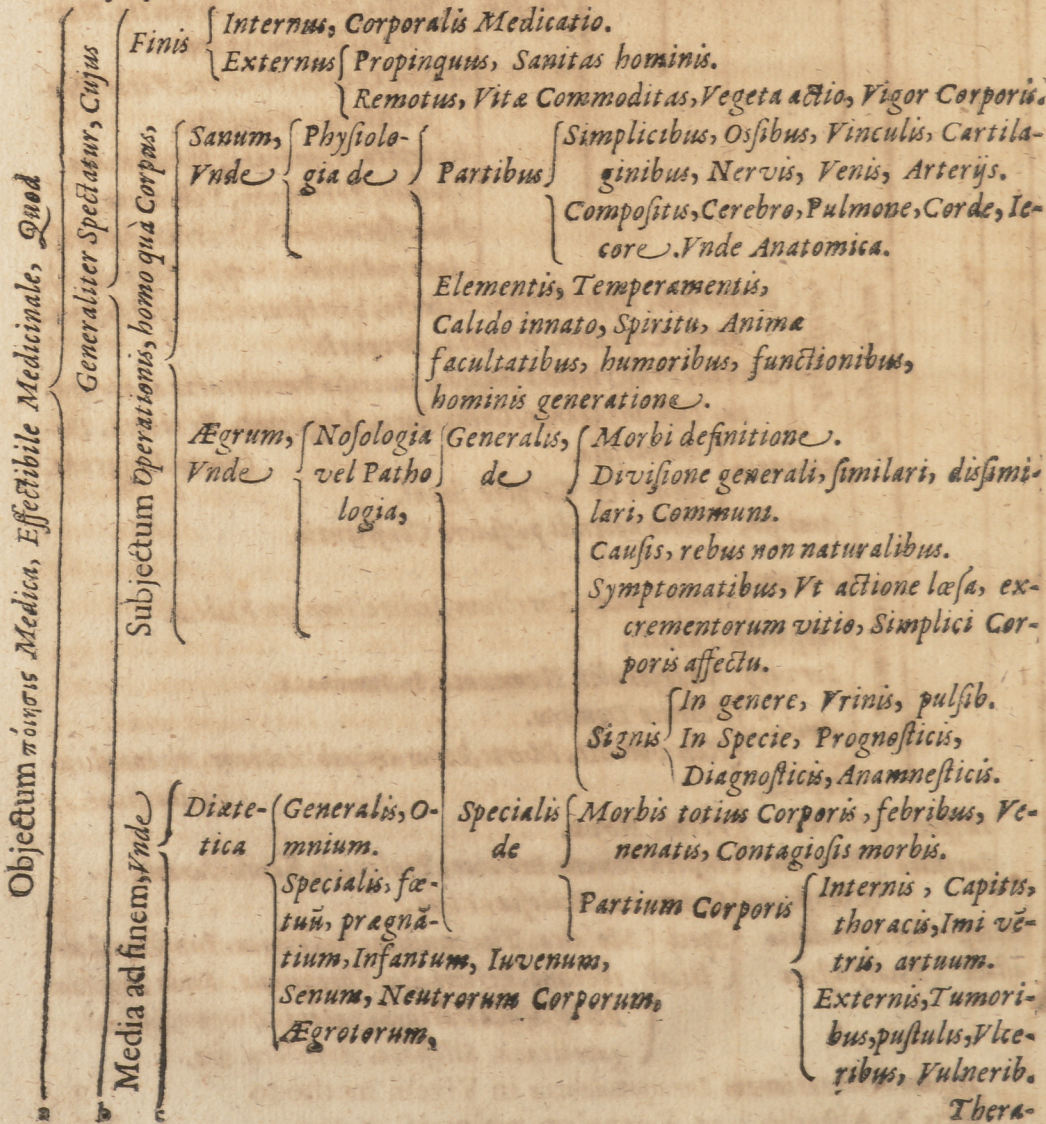 Objectum πόιησις Medica, Effectibile Medicinale, Quod
Generaliter Spectatur, Cujus
Finis
Internus, Corporalis Medicatio.
Externus
Propinquus, Sanitas hominis.
Remotus, Vitæ Commoditas, Vegeta actio, Vigor Corporis.
Subjectum Operationis, homo quà Corpus,
Sanum,
Vnde
Physiolo-
gia de
Partibus
Simplicibus, Ossibus, Vinculis, Cartila-
ginibus, Nervis, Venis, Arterijs.
Compositis, Cerebro, Pulmone, Corde, Ie-
core. Vnde Anatomica.
Elementis, Temperamentis,
Calido innato, Spiritu, Animæ
facultatibus, humoribus, functionibus,
hominis generatione.
Ægrum,
Vnde
Nosologia
vel Patho
logia,
Generalis,
de
Morbi definitione.
Divisione generali, similari, dissimi-
lari, Communi.
Causis, rebus non naturalibus.
Symptomatibus, Vt actione læsa, ex-
crementorum vitio, Simplici Cor-
poris affectu.
Signis
In genere, Vrinis, pulsib.
In Specie, Prognosticis,
Diagnosticis, Anamnesticis.
Specialis
de
Morbis totius Corporis, febribus, Ve-
nenatis, Contagiosis morbis.
Partium Corporis
Internis, Capitis,
thoracis, Imi vē-
tris, artuum.
Externis, Tumori-
bus, pustulis, Vlce-
ribus, Vulnerib.
Media ad finem, Vnde
Diæte-
tica
Generalis, O-
mnium.
Specialis, fœ-
tuū, prægnā-
tium, Infantum, Iuvenum,
Senum, Neutrorum Corporum,
Ægrotorum,
Thera-